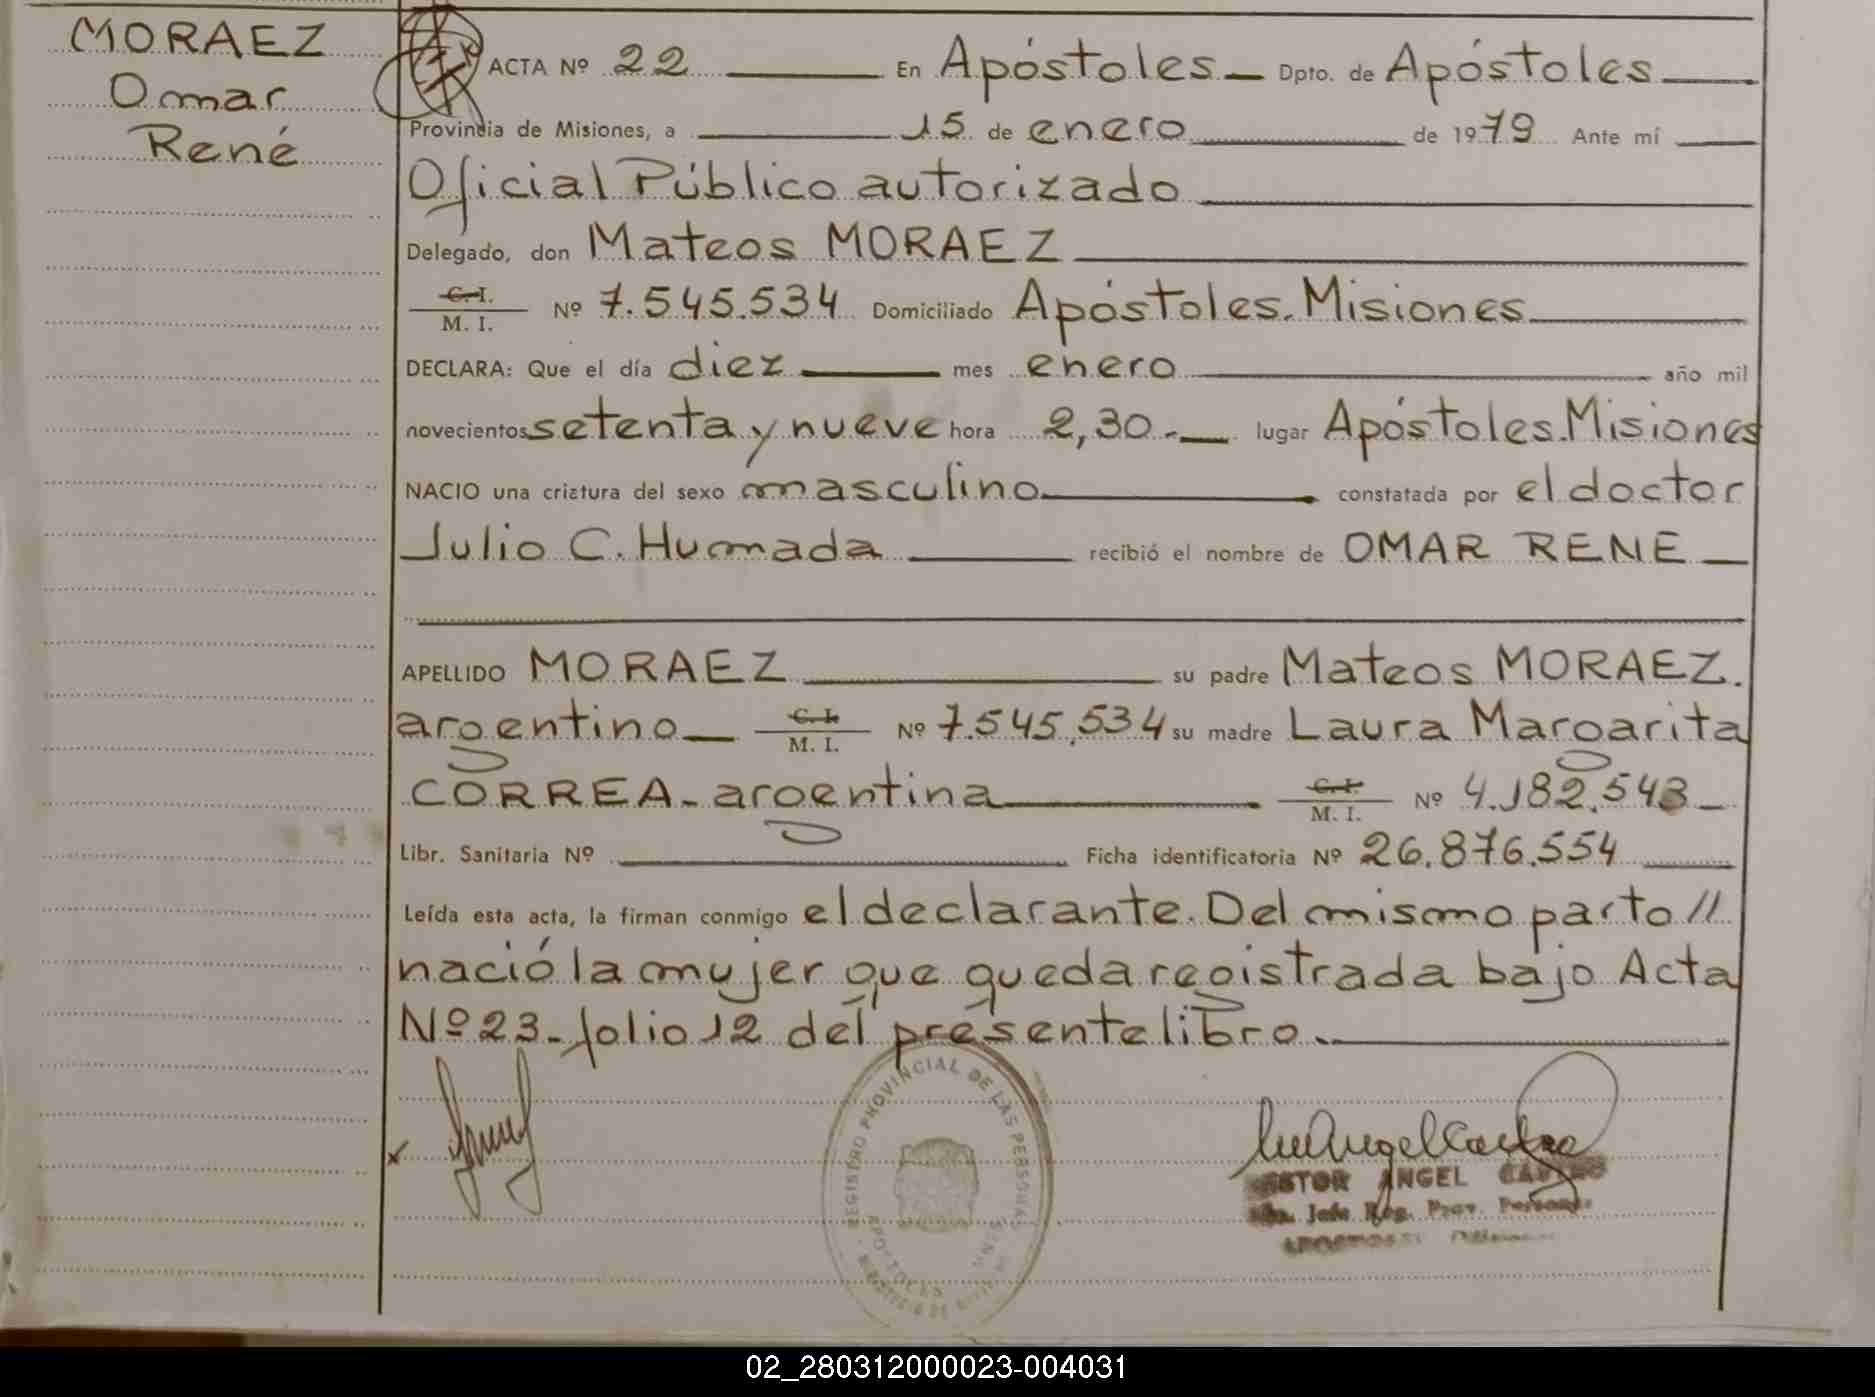 MORAEZ
Omar
René
ACTA Nº 22 En Apóstoles Dpto. de Apóstoles
Provincia de Misiones, a 15 de enero de 1979 Ante mí
Oficial Público autorizado
Delegado, don Mateos MORAEZ
C. I.
M. I.
Nº 7.545.534 Domiciliado Apóstoles. Misiones
DECLARA: Que el día diez mes enero año mil
novecientos setenta y nueve hora 2,30.- lugar Apóstoles. Misiones
NACIO una criatura del sexo masculino constatada por el doctor
Julio C. Humada recibió el nombre de OMAR RENE
APELLIDO MORAEZ su padre Mateos MORAEZ.
argentino C. I. M. I. Nº 7.545.534 su madre Laura Margarita
CORREA - argentina C. I. M. I. Nº 4.182.543
Libr. Sanitaria Nº Ficha identificatoria Nº 26.876.554
Leída esta acta, la firman conmigo el declarante. Del mismo parto //
nació la mujer que queda registrada bajo Acta
Nº 23 - folio 12 del presente libro.
REGISTRO PROVINCIAL DE LAS PERSONAS
APOSTOLES
ANGEL
Jefe Reg. Prov.
02_280312000023-004031